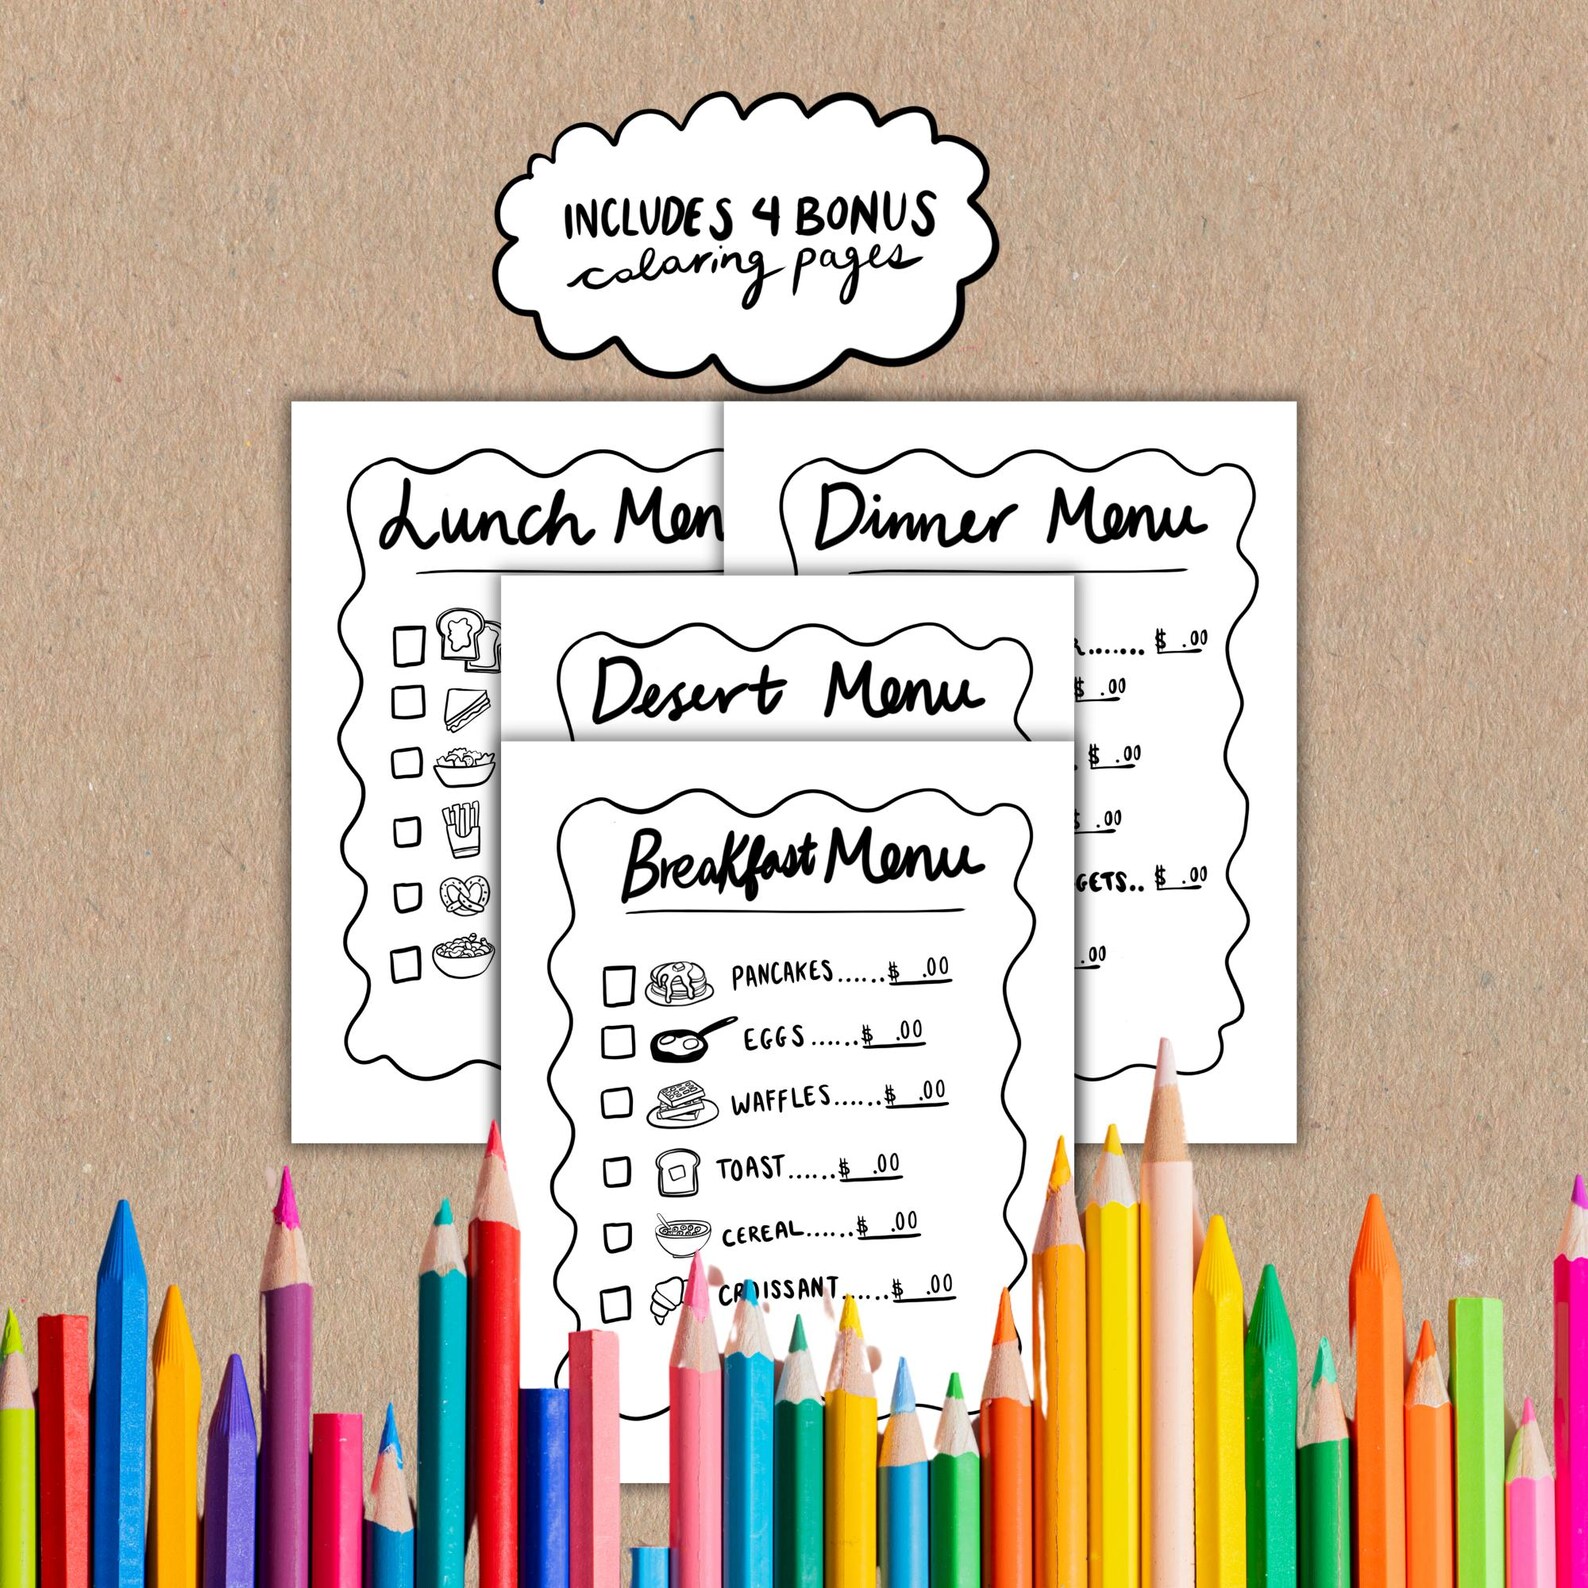 INCLUDES 4 BONUS
coloring pages
Lunch Men
Dinner Menu
....... $ .00
$ .00
$ .00
$ .00
GETS.. $ .00
.00
Desert Menu
Breakfast Menu
PANCAKES......$ .00
EGGS......$ .00
WAFFLES......$ .00
TOAST......$ .00
CEREAL......$ .00
CROISSANT......$ .00